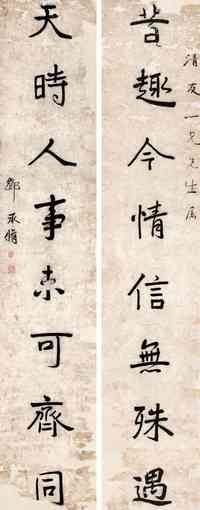 清友一兄先生屬
昔趣今情信無殊遇
天時人事亦可齊同
鄧承脩